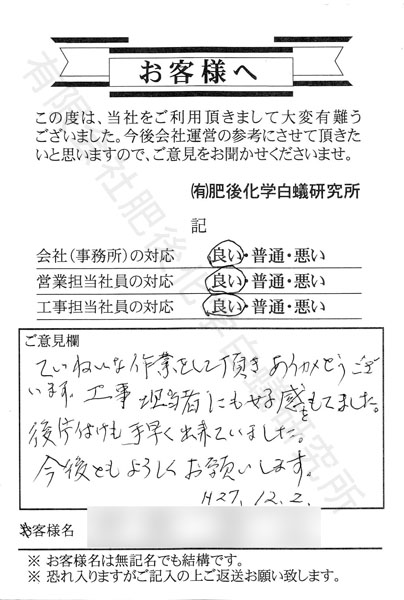 お客様へ
この度は、当社をご利用頂きまして大変有難う
ございました。今後会社運営の参考にさせて頂きた
いと思いますので、ご意見をお聞かせくださいませ。
㈲肥後化学白蟻研究所
記
会社(事務所)の対応 良い・普通・悪い
営業担当社員の対応 良い・普通・悪い
工事担当社員の対応 良い・普通・悪い
ご意見欄
ていねいな作業をして頂きありがとうござ
います。工事担当者にも好感をもてました。
後片付けも手早く出来ていました。
今後ともよろしくお願いします。
H27.12.2.
お客様名
※ お客様名は無記名でも結構です。
※ 恐れ入りますがご記入の上ご返送お願い致します。
有限会社肥後化学白蟻研究所